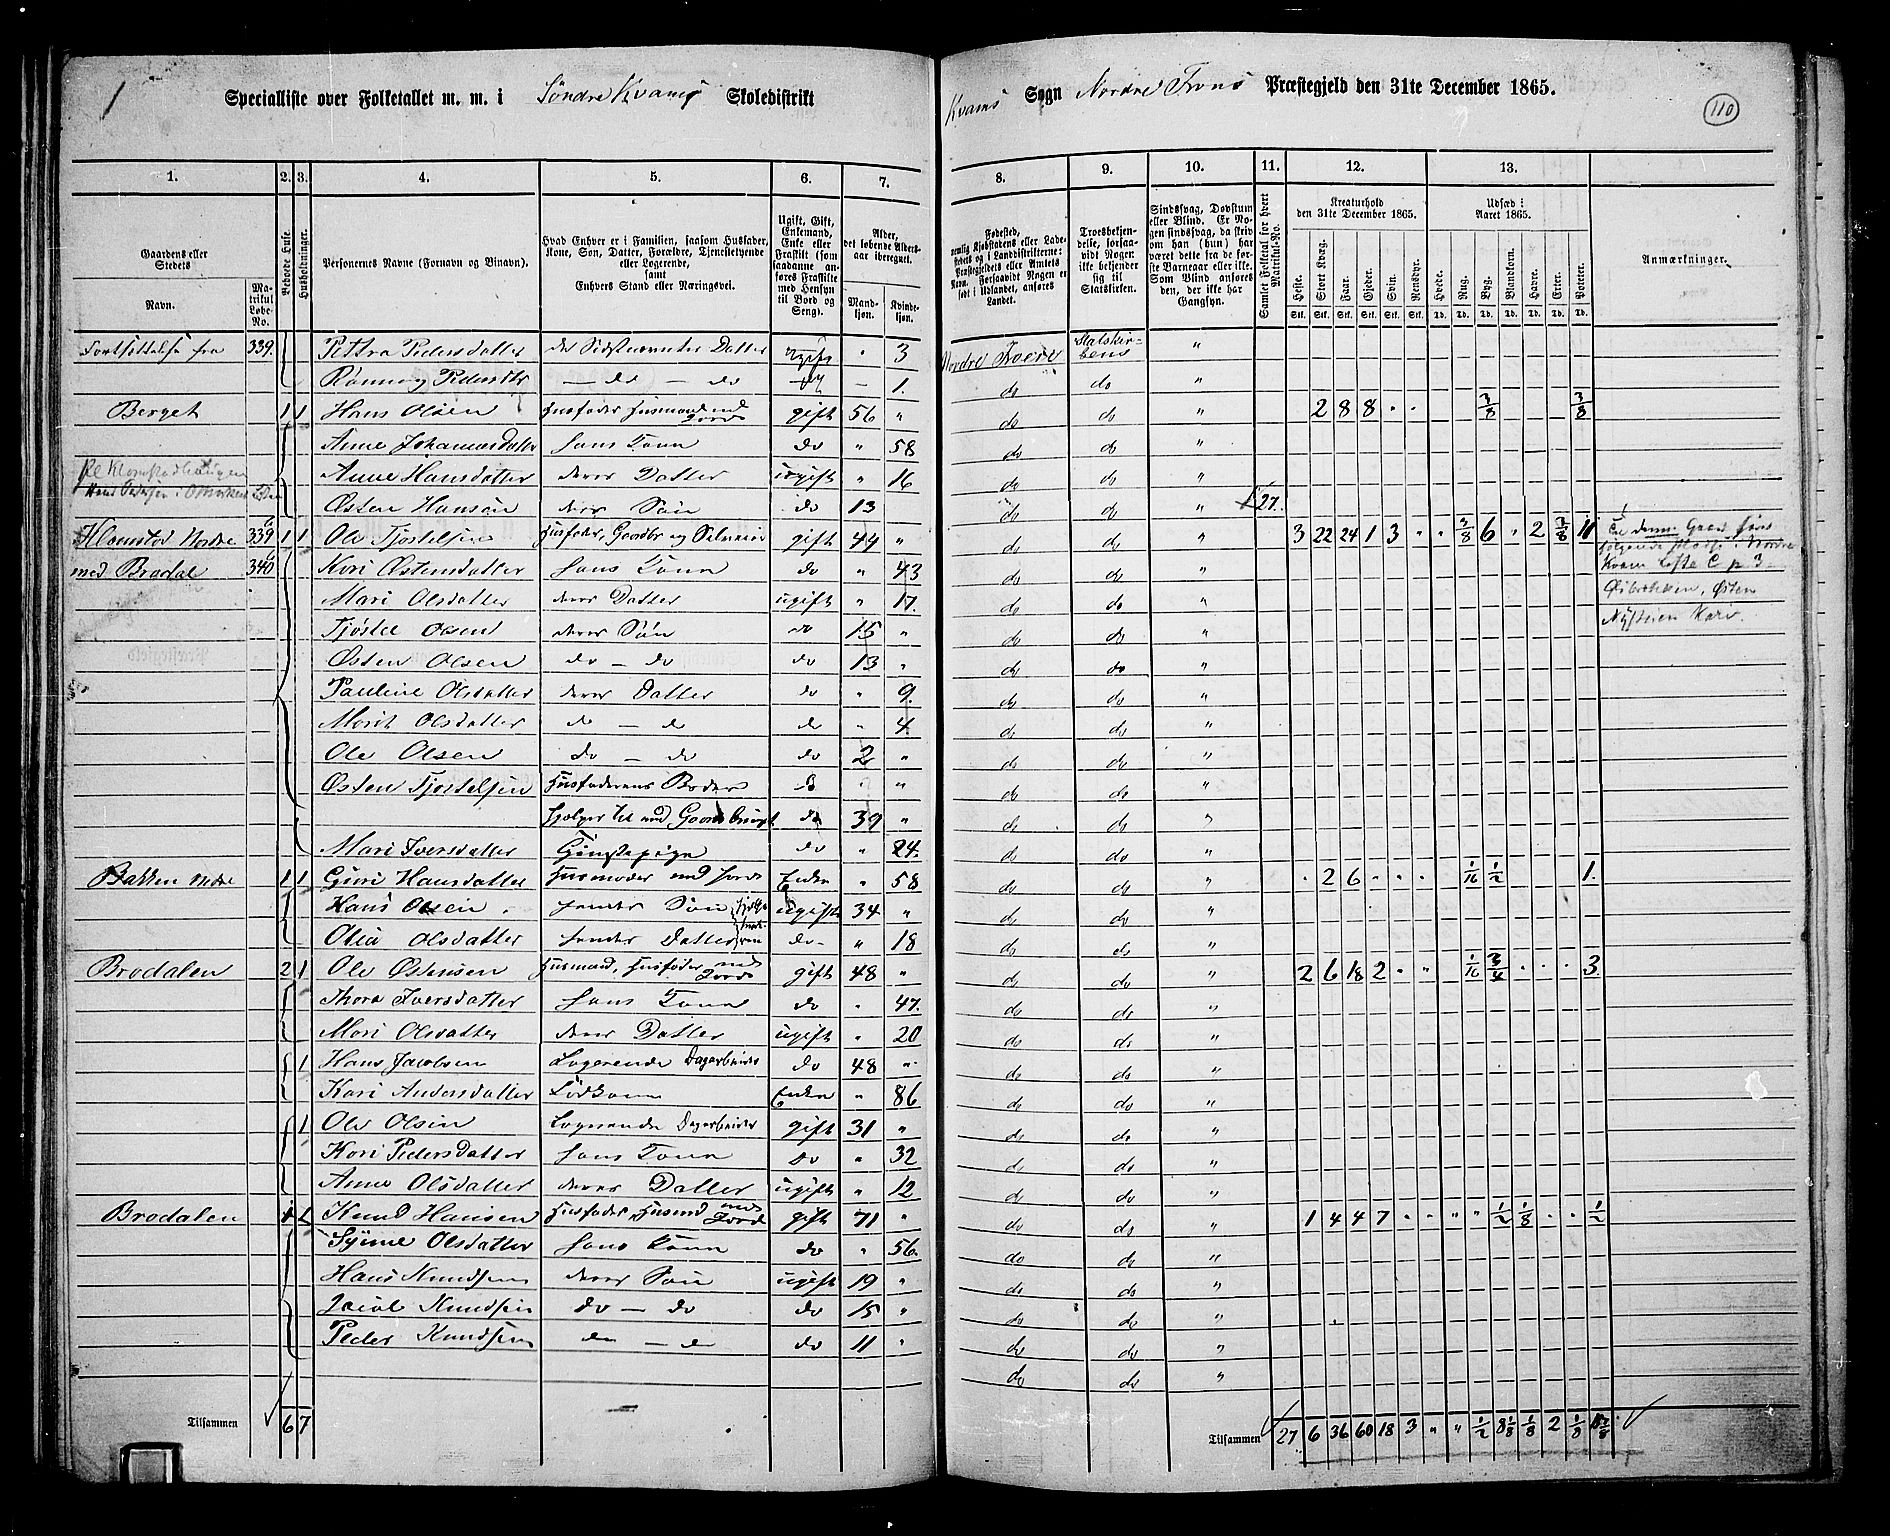 1
Specialliste over Folketallet m. m. i Søndre Kvams Skoledistrikt
Kvams Sogn Nordre Frons Præstegjeld den 31te December 1865.
110
1. 2. 3. 4. 5. 6. 7. 8. 9. 10. 11. 12. 13.
Gaardens eller Stedets Navn.
Matrikul Løbe-No.
Beboede Huse.
Husholdninger.
Personernes Navne (Fornavn og Tilnavn).
Hvad Enhver er i Familien, saasom Husfader, Kone, Søn, Datter, Forældre, Tjenestetyende eller Logerende, samt Enhvers Stand eller Næringsvei.
Ugift, Gift, Enkemand, Enke eller Fraskilt (som saadanne anføres Fraskilte med Hensyn til Bord og Seng).
Alder, det løbende Aldersaar iberegnet.
Mandkjøn. Kvindekjøn.
Fødested,
Troesbekjendelse, forsaavidt Nogen ikke bekjender sig til Statskirken.
Sindssvag, Døvstum eller Blind. Er Nogen sindssvag, da skrives om han (hun) har været dette fra de første Barneaar eller ikke. Som Blind anføres den, der ikke har Gangsyn.
Samlet Folketal for hvert Matrikul-No.
Kreaturhold den 31te December 1865.
Heste. Stort Kvæg. Faar. Gjeder. Svin. Rensdyr.
Udsæd i Aaret 1865.
Hvede. Rug. Byg. Blandkorn. Havre. Erter. Poteter.
Anmærkninger.
Fortsættelse fra 339. Pettra Pedersdatter Datter ugift " 3 Nordre Statskirkens "
Rønnoug do - do do - 1. do do "
Berget 1 1 Hans Olsen Husfader Husmand med Jord gift 56 " do do " 2 8 8 3/8 3/8
Anne Johannesdatter hans Kone do " 58 do do "
Anne Hansdatter deres Datter ugift " 16 do do "
Østen Hansen deres Søn do 13 do do " 27.
Klomstad Nordre 339 1 1 Ole Tjøstelsen Husfader, Gaardbr og Selveier gift 44 " do do " 3 22 24 1 3 " " 3/8 6 " 2 1/8 11
med Brodal 340 Kari Østensdatter hans Kone do " 43 do do "
Mari Olsdatter deres Datter ugift " 17. do do "
Tjøstel Olsen deres Søn do 15 " do do "
Østen Olsen do - do do 13 " do do "
Pauline Olsdatter deres Datter do " 9. do do "
Marit Olsdatter do - do do " 4. do do "
Ole Olsen do - do do 2 " do do "
Østen Tjøstelsen Husfaderens Broder " do do "
hjælper til med Gaardsbruget do 39 " do do "
Mari Iversdatter Tjenestepige do " 24. do do "
Bakken nedre 1 1 Guri Hansdatter Husmoder med Jord Enke " 58 do do " 2 6 1/16 1/2 1.
Hans Olsen hendes Søn ugift 34 " do do "
Olia Olsdatter hendes Datter do " 18 do do "
Brodalen 2 1 Ole Østensen Husmand, Husfader med Jord gift 48 " do do " 2 6 18 2 1/16 3/4 3.
Thora Iversdatter hans Kone do " 47. do do "
Mari Olsdatter deres Datter ugift " 20 do do "
1 Hans Jacobsen Logerende Dagarbeider do 48 " do do "
Kari Andersdatter Enke " 86 do do "
1 Ole Olsen Logerende Dagarbeider gift 31 " do do "
Kari Pedersdatter hans Kone do " 32 do do "
Anne Olsdatter deres Datter ugift " 12 do do "
Brodalen 1 1 Knud Hansen Husfader, Husmd med Jord gift 71 " do do " 1 4 4 7 1/2 1/8 1/2
Olsdatter hans Kone do " 56. do do "
Hans Knudsen deres Søn ugift 19 " do do "
Jacob Knudsen do - do do 15 " do do "
Peder Knudsen do - do do 11 " do do "
do do "
Tilsammen 6 7
Tilsammen 27 6 36 60 18 3 " " 1/2 8 1/8 1/8 2 1/8